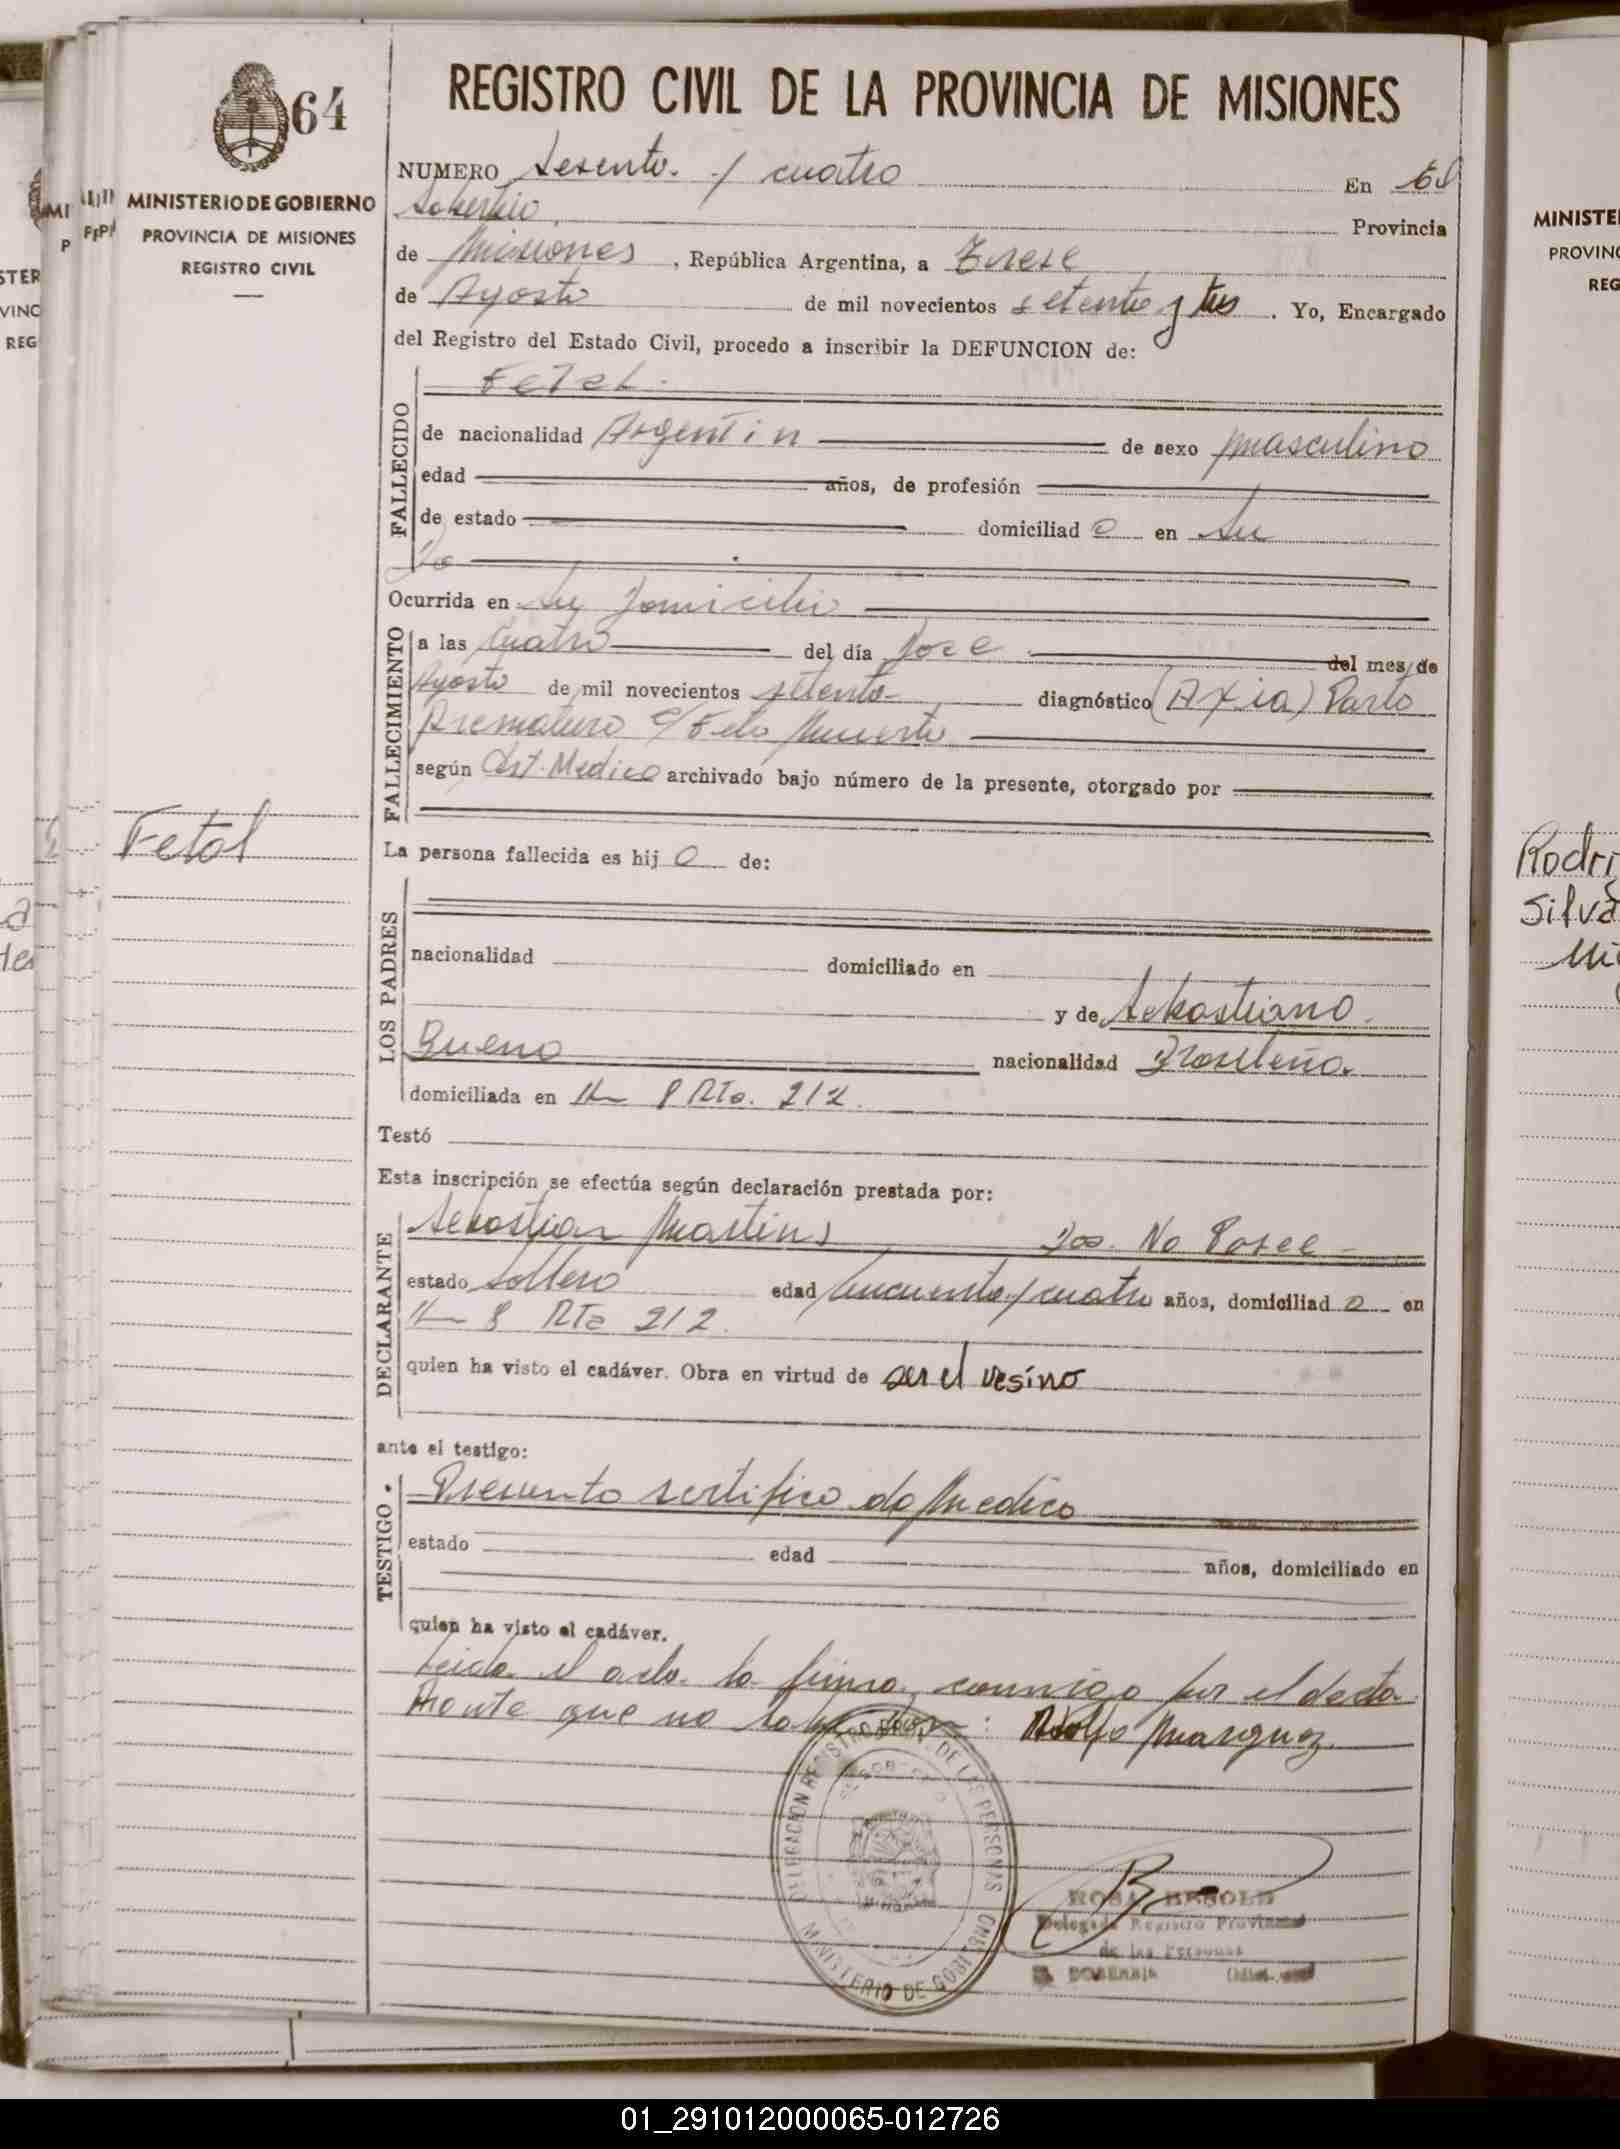 64
REGISTRO CIVIL DE LA PROVINCIA DE MISIONES
MINISTERIO DE GOBIERNO
PROVINCIA DE MISIONES
REGISTRO CIVIL
NUMERO Sesenta y cuatro En El
Soberbio Provincia
de Misiones, República Argentina, a Trese
de Agosto de mil novecientos setenta y tres. Yo, Encargado
del Registro del Estado Civil, procedo a inscribir la DEFUNCION de:
FALLECIDO
Fetal.
de nacionalidad Argentin de sexo masculino
edad años, de profesión
de estado domiciliad o en Su
Do
Ocurrida en Su Domicilio
FALLECIMIENTO
a las Cuatro del día Doce del mes de
Agosto de mil novecientos setenta diagnóstico (Axia) Parto
Prematuro c/ Feto Muerto
según Cert. Medico archivado bajo número de la presente, otorgado por
Fetal
La persona fallecida es hij o de:
LOS PADRES
nacionalidad domiciliado en
y de Sebastiana
Bueno nacionalidad Brasileña.
domiciliada en Km 8 Rta. 212.
Testó
Esta inscripción se efectúa según declaración prestada por:
DECLARANTE
Sebastian Martins Doc. No Posee
estado Soltero edad cincuenta y cuatro años, domiciliad o en
Km 8 Rta 212.
quien ha visto el cadáver. Obra en virtud de ser el vesino
ante el testigo:
TESTIGO
Presento sertifico do Medico
estado edad años, domiciliado en
quien ha visto el cadáver.
Leida el acta la firma conmigo por el decla
rante que no Adolfo Marquez.
DELEGACION REGISTRO DE LAS PERSONAS
MINISTERIO DE GOBIERNO
ROSA BESOLD
Delegada Registro Provincial
de las Personas
EL SOBERBIO
MINISTE
PROVINC
REG
Rodri
Silva
Mi
01_291012000065-012726